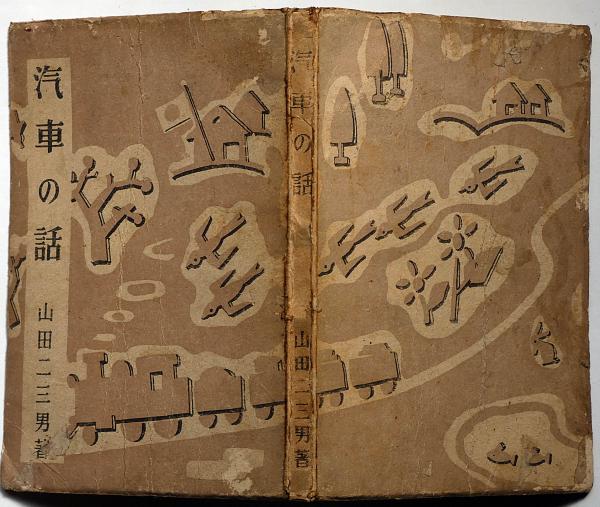 汽車の話
山田二三男著
汽車の話
山田二三男著